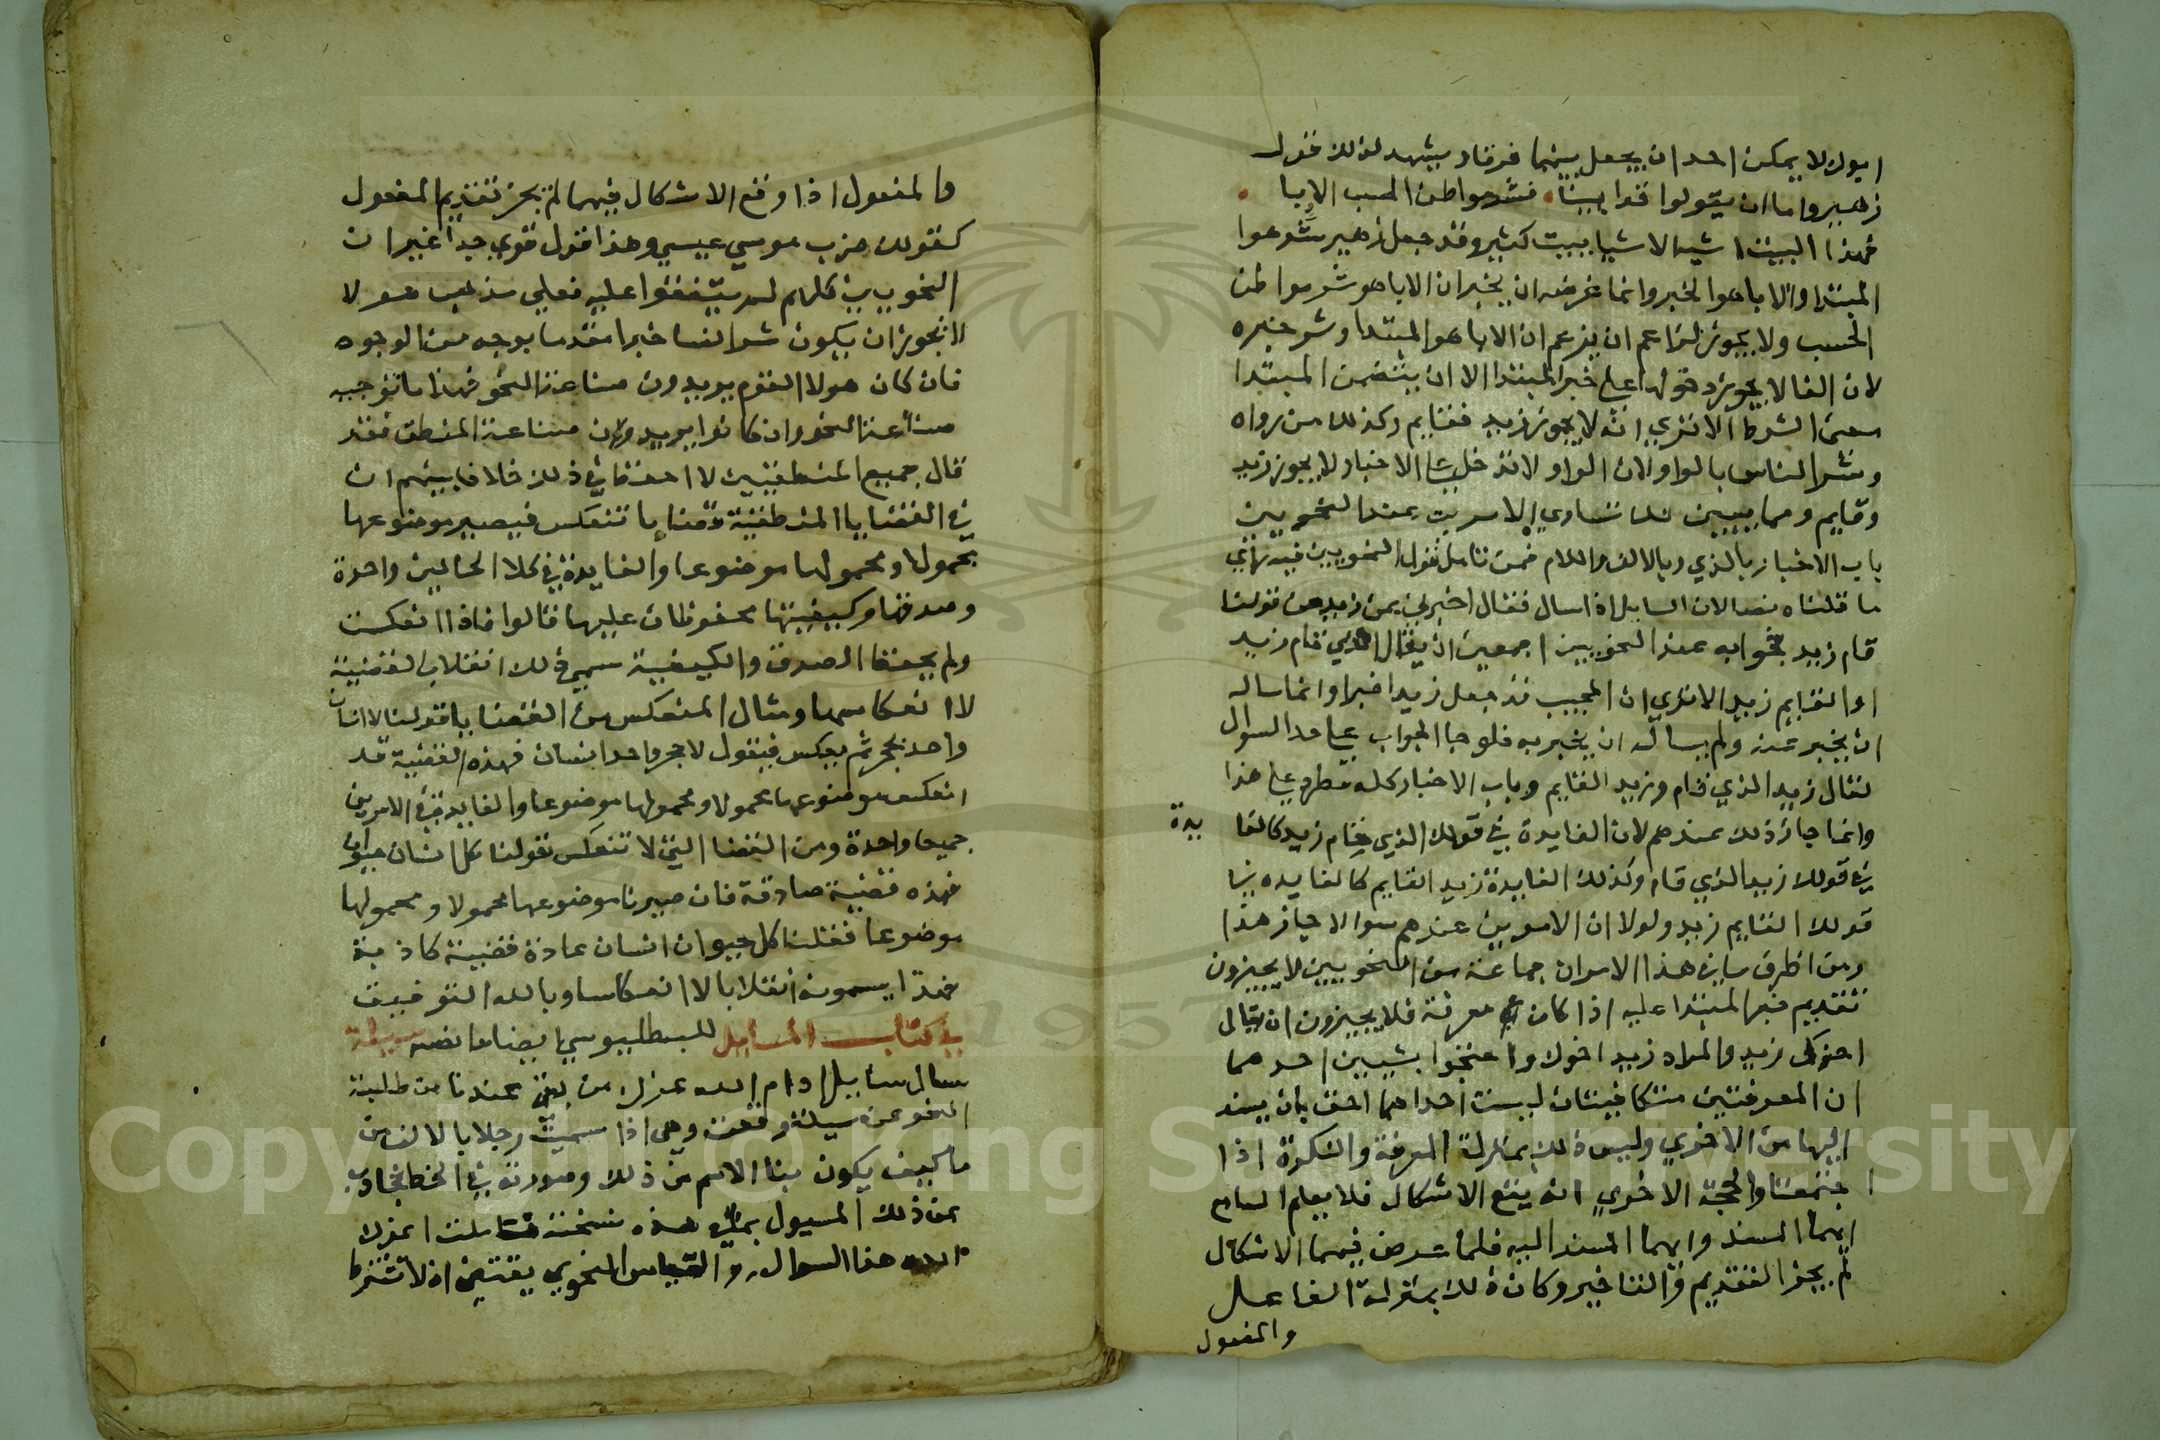 ابوك لا يمكن احد ان يجعل بينهما فرقا ويشهد لذلك قول
زهير واما ان يقولوا قد ابينا فشر مواطن الحسب الابا
فهذا البيت اشبه الاشيا ببيت كثير وقد جعل زهير شر موا
المبتدا والابا هو الخبر وانما غرضه ان يخبر ان الابا هو شر مواطن
الحسب ولا يجوز لزاعم ان يزعم ان الابا هو المبتدا وشر خبره
لان الفا لا يجوز دخولها على خبر المبتدا الا ان يتضمن المبتدا
معنى الشرط الا تري انه لا يجوز زيد فقايم وكذلك من رواه
وشر الناس بالواو لان الواو لا تدخل على الاخبار لا يجوز زيد
وقايم ومما يبين لك تساوي الامرين عند النحويين
باب الاخبار بالذي وبالالف واللام فمن تامل قول النحويين فيه راي
ما قلناه نصا لان السايل اذا سال فقال اخبرني عن زيد من قولنا
قام زيد فجوابه عند النحويين اجمعين ان يقال الذي قام زيد
او القايم زيد الا تري ان المجيب قد جعل زيدا خبرا وانما ساله
ان يخبر عنه ولم يساله ان يخبر به فلو جا الجواب على حد السوال
لقال زيد الذي قام وزيد القايم وباب الاخبار كله مطرد على هذا
وانما جاز ذلك عندهم لان الفايدة في قولك الذي قام زيد كالفا يدة
في قولك زيد الذي قام وكذلك الفايدة زيد القايم كالفايده في
قولك القايم زيد ولولا ان الامرين عندهم سوا لا جاز هذا
ومن اظرف ما في هذا الامر ان جماعة من النحويين لا يجيزون
تقديم خبر المبتدا عليه اذا كان معرفة فلا يجيزون ان يقال
اخوك زيد والمراد زيد اخوك واحتجوا بشيين احدهما
ان المعرفتين متكافيتان ليست احداهما احق بان يسند
اليها من الاخري وليس ذلك بمنزلة المعرفة والنكرة اذا
اجتمعتا والحجة الاخري انه يقع الاشكال فلا يعلم السامع
ايهما المسند وايهما المسند اليه فلما عرض فيهما الاشكال
لم يجز التقديم والتاخير وكان ذلك بمنزلة الفاعل
والمفعول
والمفعول اذا وقع الاشكال فيهما لم يجز تقديم المفعول
كقولك ضرب موسي عيسي وهذا قول قوي جدا غير ان
النحويين كلهم لم يتفقوا عليه فعلي مذهب هولا
لا يجوز ان يكون شر النسا خبرا مقدما بوجه من الوجوه
فان كان هولا القوم يريدون صناعة النحو فهذا ما توجبه
صناعة النحو وان كانوا يريدون صناعة المنطق فقد
قال جميع المنطقيين لا احفظ في ذلك خلافا بينهم ان
في القضايا المنطقية قضايا تنعكس فيصير موضوعها
محمولا ومحمولها موضوعا والفايدة في كلا الحالين واحدة
وصدقها وكيفيتها محفوظان عليها قالوا فاذا انعكست
ولم يحفظ الصدق والكيفية سمي ذلك انقلاب القضية
لا انعكاسها ومثال المنعكس من القضايا قولنا لا انسان
واحد بحجر ثم يعكس فيقول لا حجر واحد انسان فهذه القضية قد
انعكس موضوعها محمولا ومحمولها موضوعا والفايدة في الامرين
جميعا واحدة ومن القضايا التي لا تنعكس قولنا كل انسان حيوان
فهذه قضية صادقة فان صيرنا موضوعها محمولا ومحمولها
موضوعا فقلنا كل حيوان انسان عادة قضية كاذبة
فهذا يسمونه انقلابا لا انعكاسا وبالله التوفيق
في كتاب المسايل للبطليوسي ايضا ما نصه مسيلة
سال سايل ادام الله عزك من عندنا من طلبة
النحو عن مسيلة وقعت وهي اذا سميت رجلا بالالف من
ما كيف يكون بنا الاسم من ذلك وصورته في الخط فجاوب
عن ذلك المسيول بما هذه نسخته سالت اعزك
الله هذا السوال والقياس النحوي يقتضي ان لا تشترط